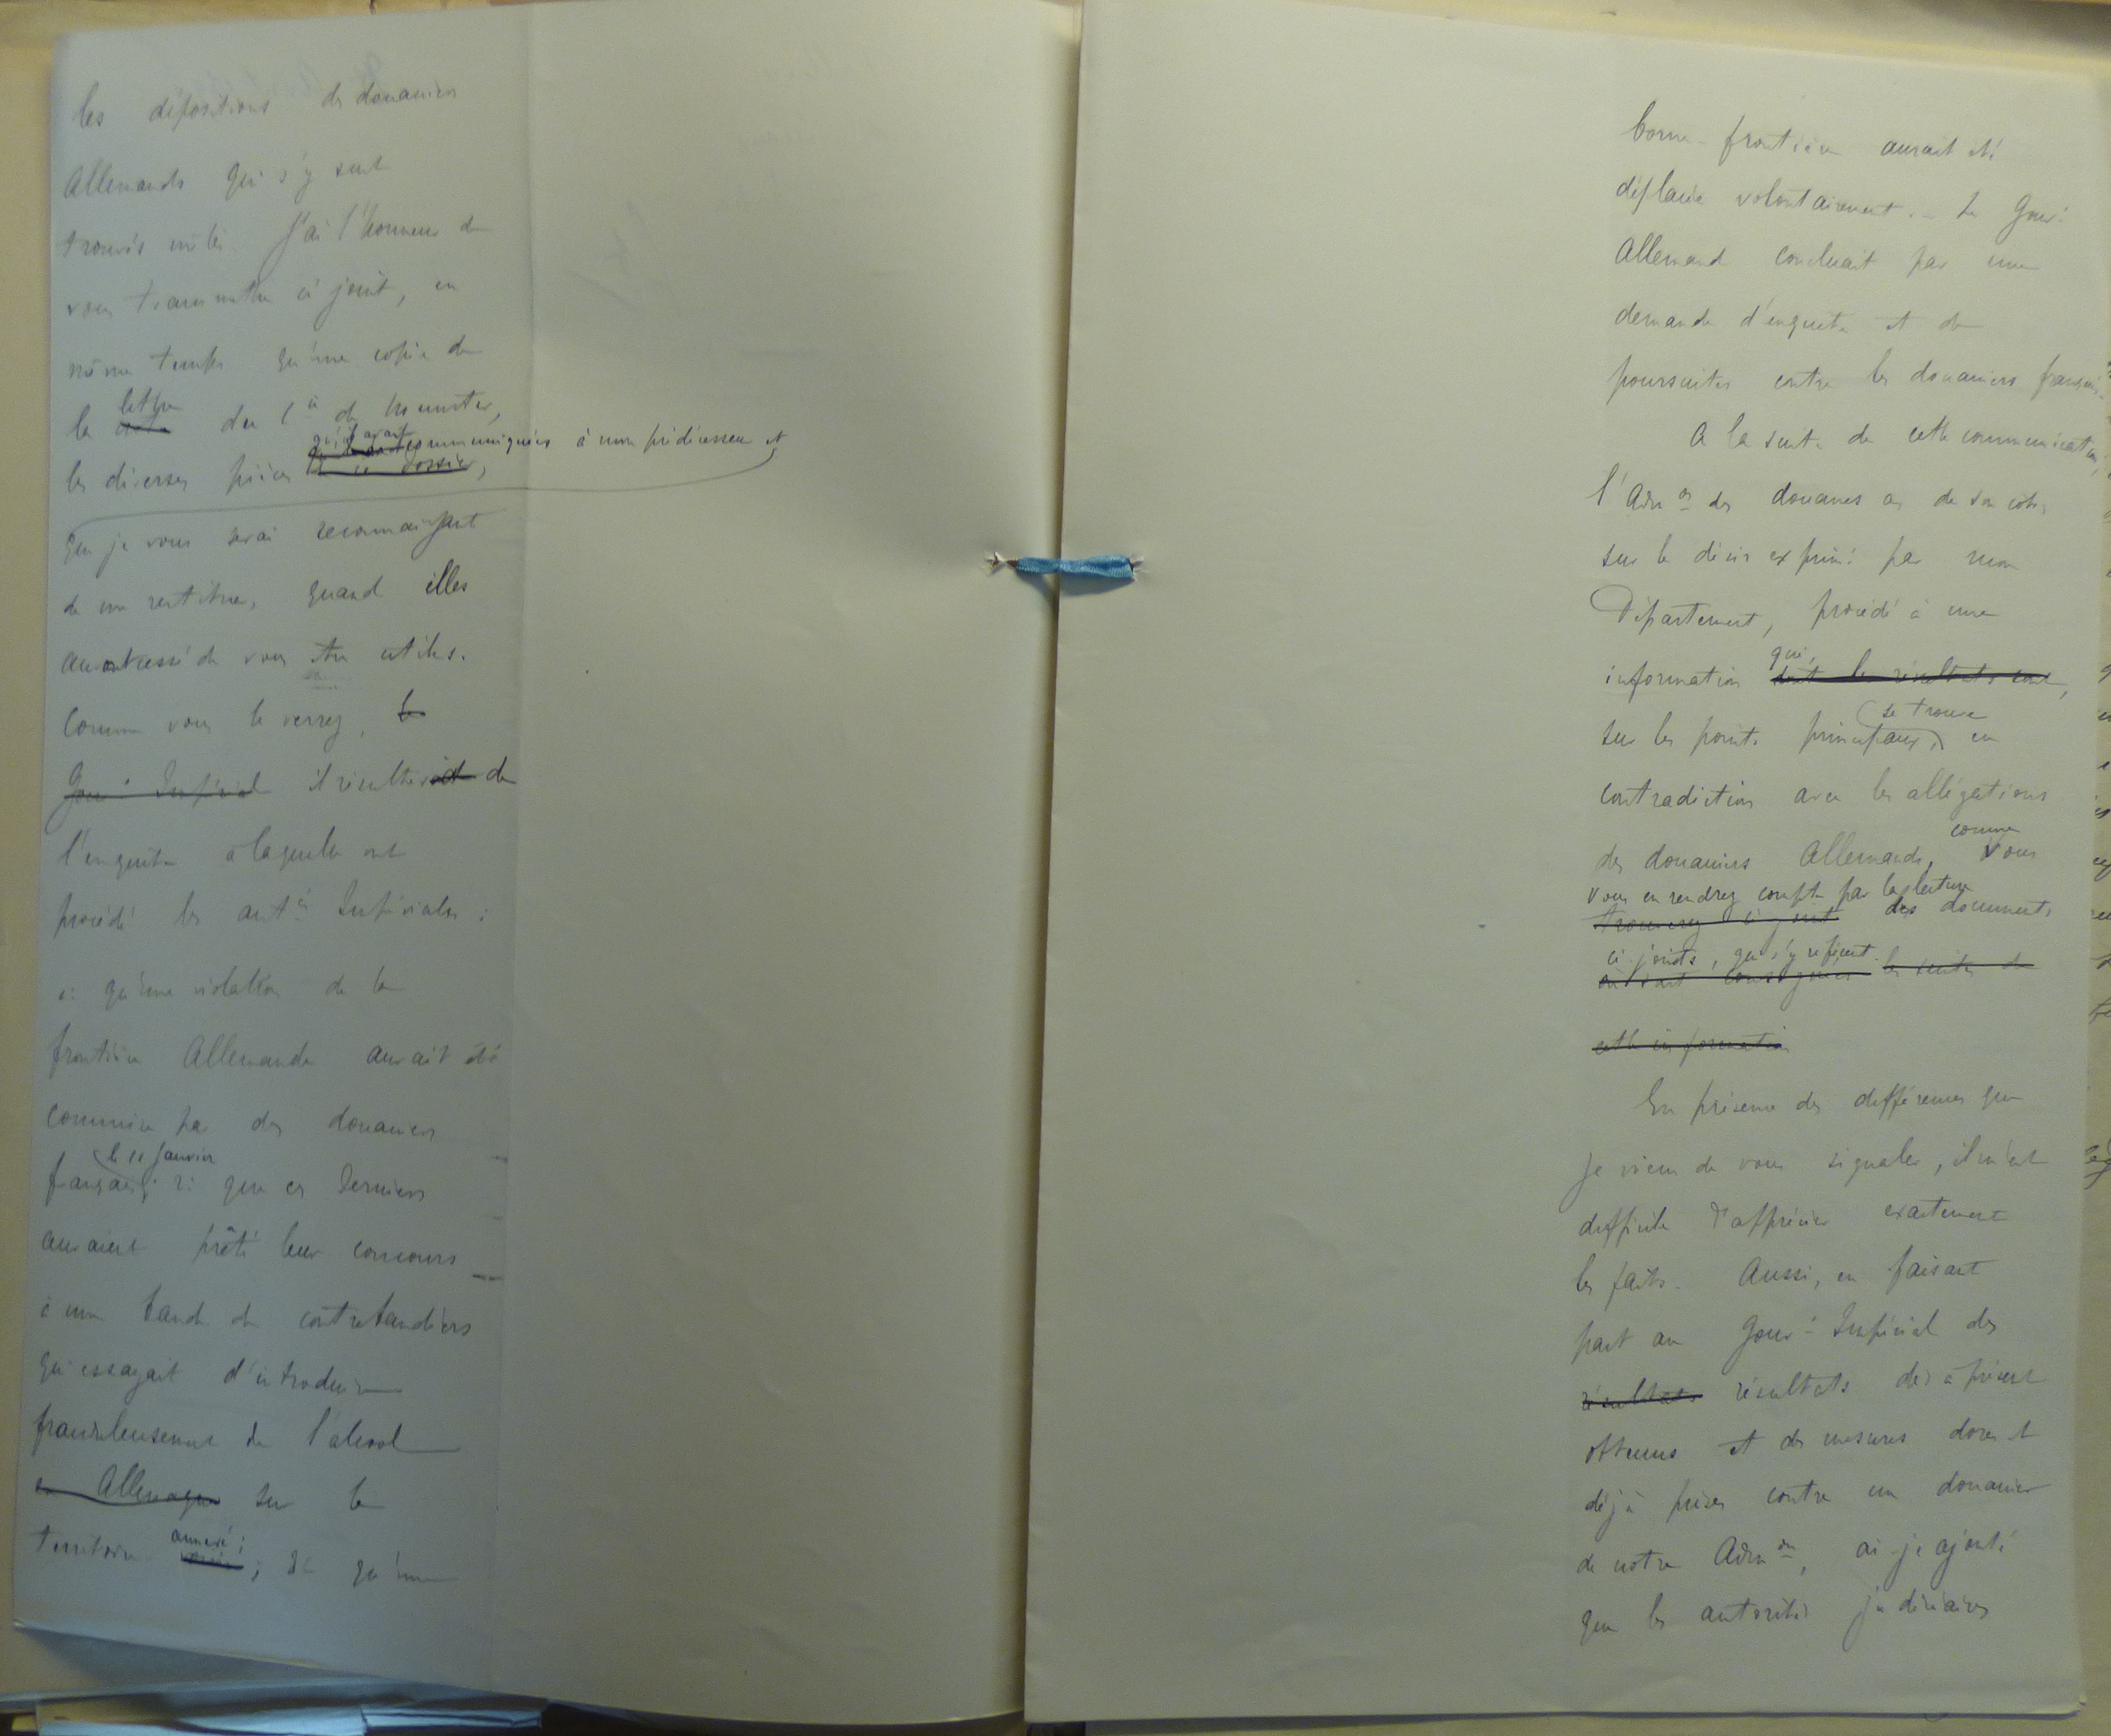 les dépositions des douaniers
Allemands qui s'y sont
trouvés mêlés. J'ai l'honneur de
vous transmettre ci joint, en
même temps qu'une copie de
lettre
la du Cte de Munster,
qu'il avait communiquées à mon prédécesseur et
les diverses pièces de ce dossier,
que je vous serai reconnaissant
de me restituer, quand elles
auront cessé de vous être utiles.
Comme vous le verrez, le
Gouvt Impérial il résulterait de
l'enquête à laquelle ont
procédé les autés Impériales :
1: qu'une violation de la
frontière Allemande aurait été
commise par des douaniers
le 11 Janvier
français; 2: que ces derniers
auraient prêté leur concours
à une bande de contrebandiers
qui essayait d'introduire
frauduleusement de l'alcool
en Allemagne sur le
annexé;
territoire ; 3: qu'une
borne-frontière aurait été
déplacée volontairement. _ Le Gouvt
Allemand concluait par une
demande d'enquête et de
poursuites contre les douaniers français.
A la suite de cette communication,
l'Admon des douanes a, de son côté,
sur le désir exprimé par mon
Département, procédé à une
qui,
information dont les résultats sont,
se trouve
sur les points principaux, en
contradiction avec les allégations
comme
des douaniers Allemands, Vous
vous en rendrez compte par la lecture
trouverez ci joint des documents
ci-joints, qui s'y réfèrent.
où sont consignées les suites de
cette information
En présence des différences que
je viens de vous signaler, il m'est
difficile d'apprécier exactement
les faits. Aussi, en faisant
part au Gouvt Impérial des
résultats résultats dès à présent
obtenus et des mesures dores et
déjà prises contre un douanier
de notre Admon, ai-je ajouté
que les autorités judiciaires